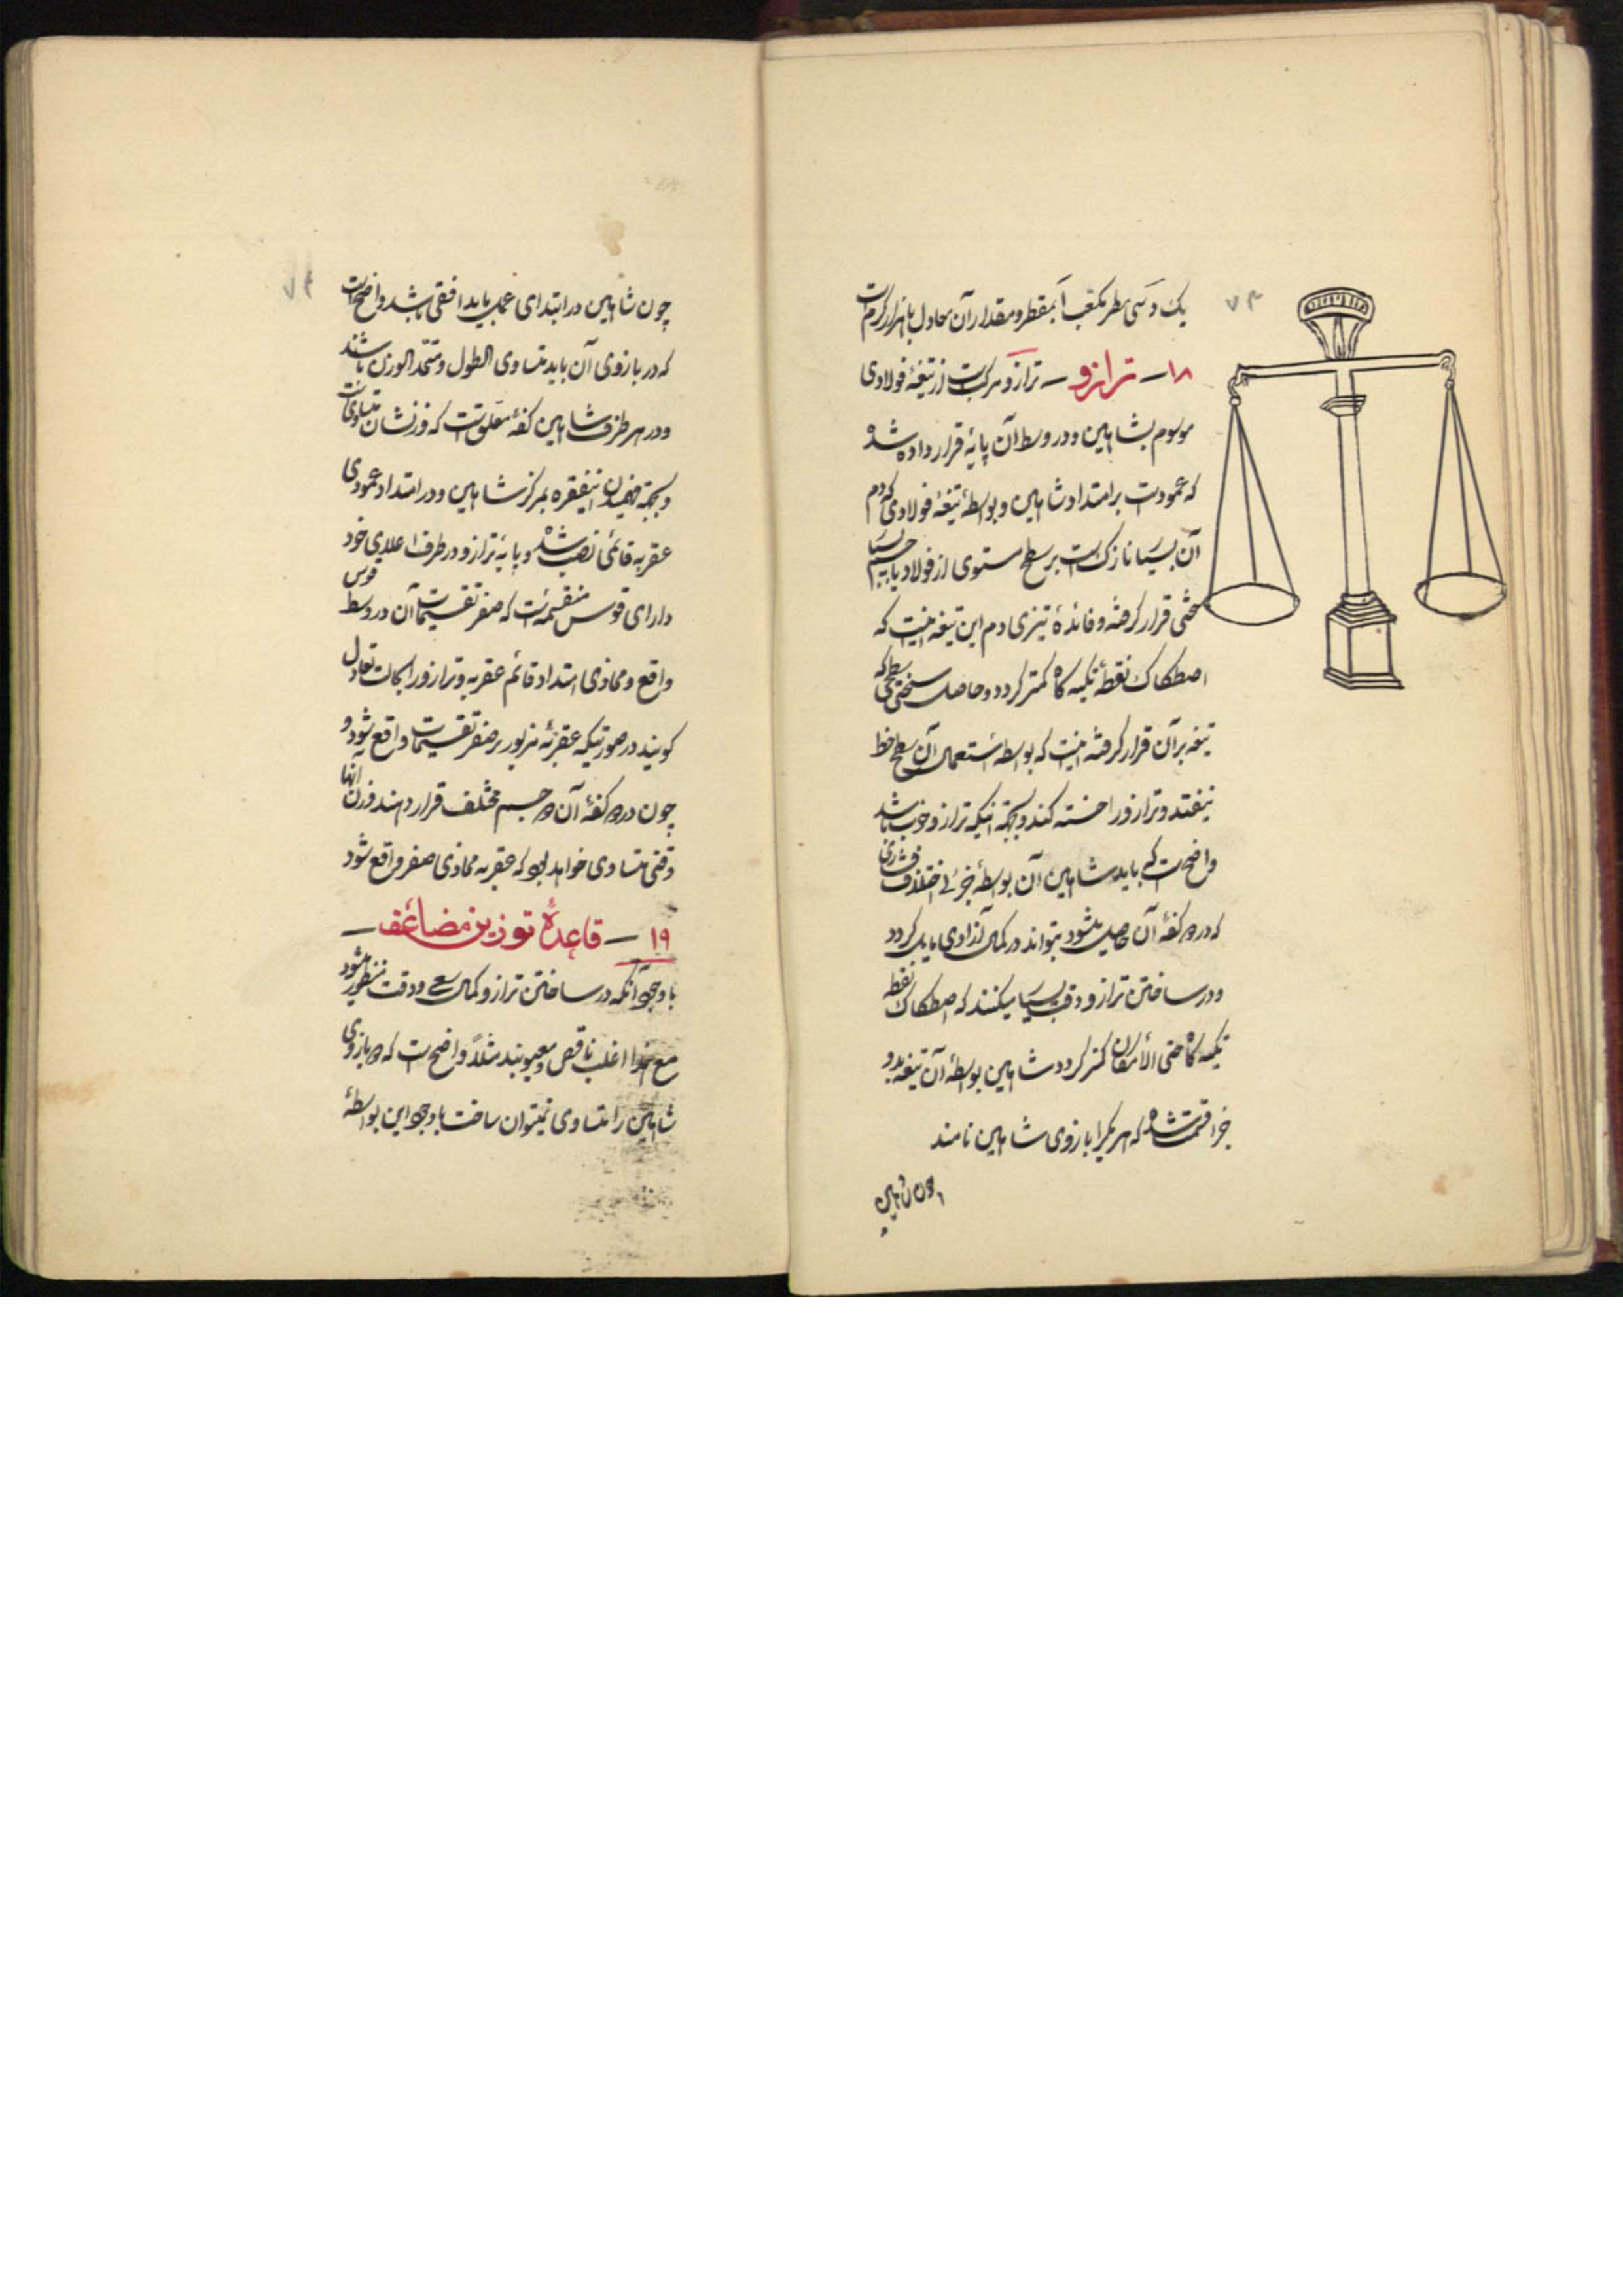 ۷۳
یک دسی مطر مکعب آب مقطر و مقدار آن معادل با هزار گرم است
۱۸ – ترازو – ترازو مرکب است از تیغهٔ فولادی
موسوم بشاهین و در وسط آن پایهٔ قرار داده شده
که عمود است بر امتداد شاهین و بواسطهٔ تیغهٔ فولادی که دم
آن بسیار نازک است بر سطح مستوی از فولاد یا جسم بسیار
سختی قرار گرفته و فائدهٔ تیزی دم این تیغه اینست که
اصطکاک نقطهٔ تکیه گاه کمتر گردد و حاصل سختی سطحی که
تیغه بر آن قرار گرفته اینست که بواسطه استعمال آن سطح خط
نیفتد و ترازو را خسته کند و بجهة اینکه ترازو خوب باشد
واضح است که باید شاهین آن بواسطهٔ جزئی اختلاف فشاری
که در دو کفهٔ آن حاصل میشود بتواند در کمال آزادی مایل گردد
و در ساختن ترازو دقت بسیار میکنند که اصطکاک نقطه
تکیه گاه حتی الأمکان کمتر گردد شاهین بواسطهٔ آن تیغه بدو
جزء قسمت شده که هر یکرا بازوی شاهین نامند
چون شاهین
۷۴
چون شاهین در ابتدای عمل باید افقی باشد واضح است
که دو بازوی آن باید متساوی الطول و متحد الوزن باشند
و در هر طرف شاهین کفهٔ معلق است که وزنشان متساوی است
و بجهة فهمیدن اینفقره بمرکز شاهین و در امتداد عمودی
عقربه قائمی نصب شده و پایهٔ ترازو در طرف اعلای خود
دارای قوس منقسمه است که صفر تقسیمات آن در وسط قوس
واقع و محاذی امتداد قائم عقربه و ترازو را بحالت تعادل
گویند در صورتیکه عقربهٔ مزبور بر صفر تقسیمات واقع شود و
چون در دو کفهٔ آن دو جسم مختلف قرار دهند وزن آنها
وقتی متساوی خواهد بود که عقربه محاذی صفر واقع شود
۱۹ – قاعدهٔ توزین مضاعف –
با وجود آنکه در ساختن ترازو کمال سعی و دقت منظور میشود
مع هذا اغلب ناقص و معیوبند مثلاً واضح است که دو بازوی
شاهین را متساوی نمیتوان ساخت با وجود این بواسطهٔ